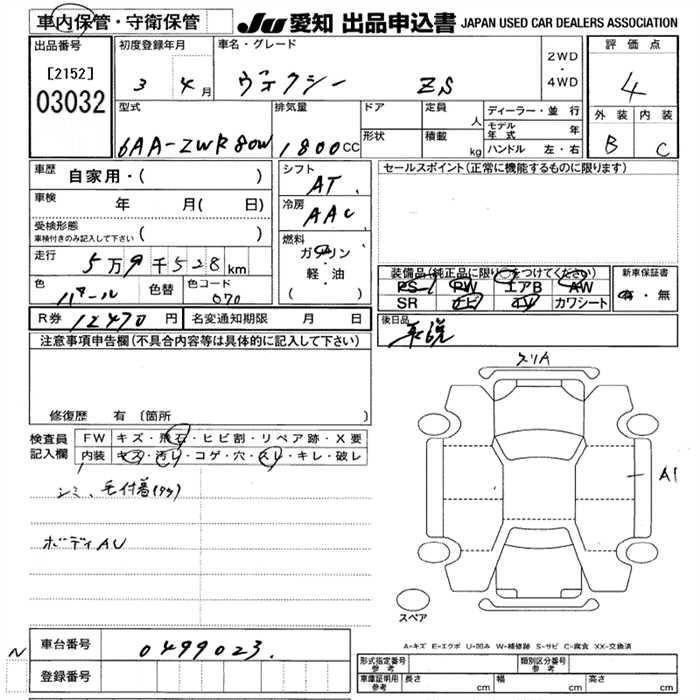 車内保管・守衛保管
JU 愛知 出品申込書 JAPAN USED CAR DEALERS ASSOCIATION
出品番号 初度登録年月 車名・グレード 2WD・4WD 評価点
[2152]
03032
3 4月 ヴォクシー ZS 4
外装 内装
B C
型式 排気量 ドア 定員 人 ディーラー・並行
6AA-ZWR80W 1800cc 形状 積載 kg モデル年式 年
ハンドル 左・右
車歴 自家用・( ) シフト AT セールスポイント(正常に機能するものに限ります)
車検 年 月( 日) 冷房 AAC
受検形態
車検付きのみ記入して下さい ( ) 燃料 ガソリン
軽・油
( )
走行 5万9千528km
色 パール 色替 色コード 070
装備品(純正品に限り○をつけてください) 新車保証書
PS PW エアB AW 有・無
SR ナビ TV カワシート
R券 12470円 名変通知期限 月 日 後日品
取説
注意事項申告欄(不具合内容等は具体的に記入して下さい)
修復歴 有 〔箇所
検査員記入欄 FW キズ・飛石・ヒビ割・リペア跡・X要
内装 キズ・汚レ・コゲ・穴・スレ・キレ・破レ
シミ、毛付着(タタ)
ボディAU
スリA
A1
スペア
A-キズ E-エクボ U-凹み W-補修跡 S-サビ C-腐食 XX-交換済
N 車台番号 0499023
登録番号
形式指定番号 参考 類別区分番号 参考
車庫証明用 参考 長さ cm 幅 cm 高さ cm